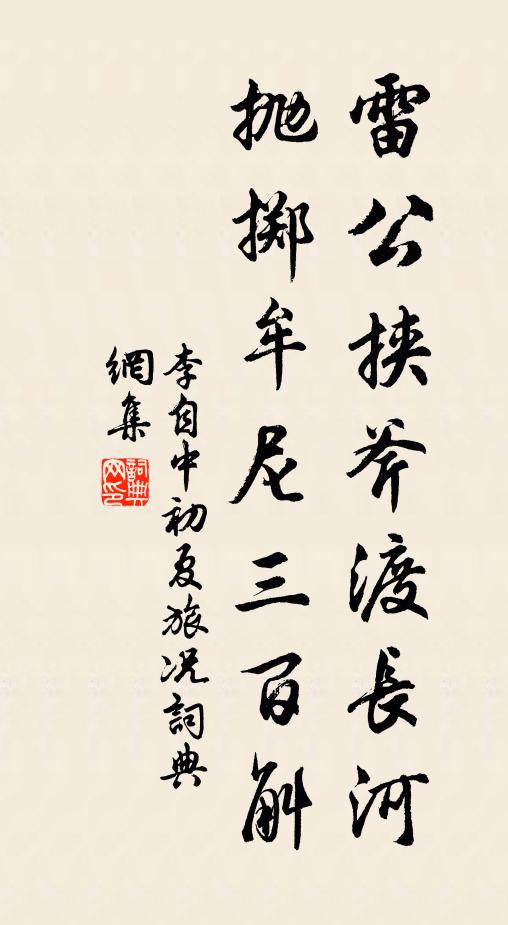 雷公挾斧渡長河
抛擲牟尼三百斛
李自中初夏旅况詞典
網集
詞典網印